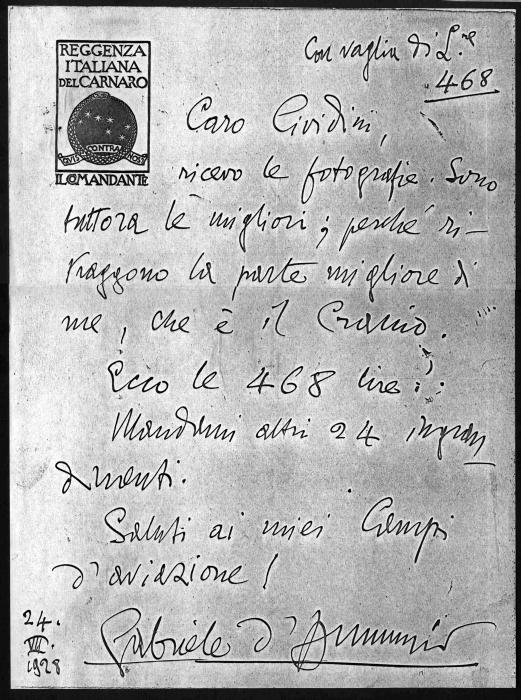 REGGENZA
ITALIANA
DEL CARNARO
QUIS CONTRA NOS
IL COMANDANTE
Con vaglia di L.re
468
Caro Cividini,
ricevo le fotografie. Sono
tuttora le migliori; perché ri-
traggono la parte migliore di
me, che è il Cranio.
Ecco le 468 lire.
Mandami altri 24 ingran
dimenti.
Saluti ai miei Campi
d'aviazione!
24.
VII.
1928
Gabriele d'Annunzio